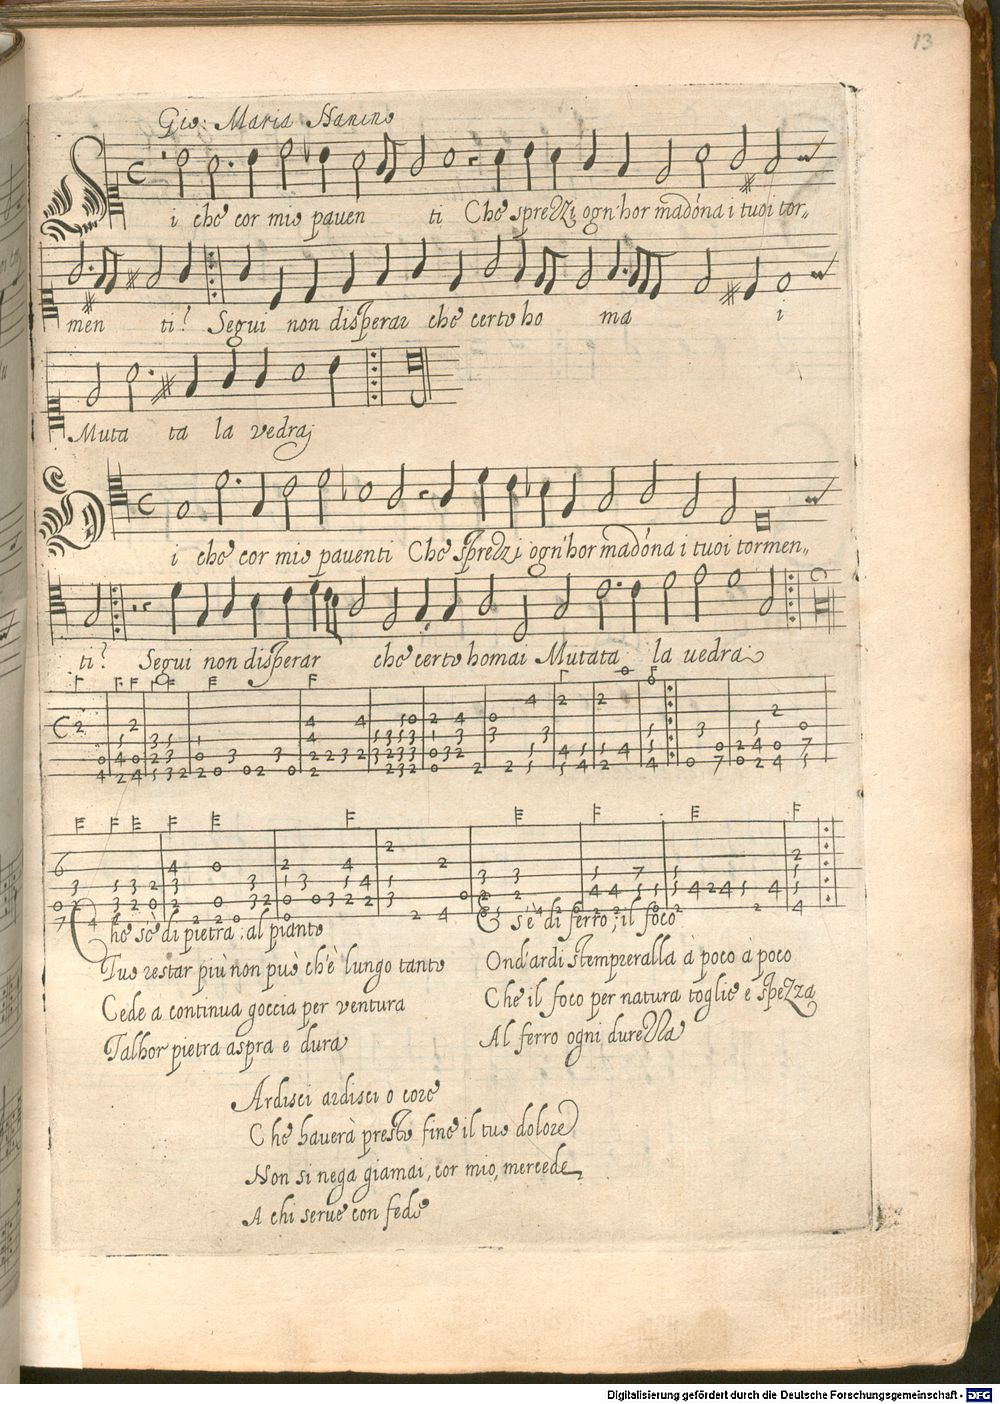 13
Gio: Maria Nanino
Di che cor mio paven ti Che sprezzi ogn'hor madóna i tuoi tor„
men ti? Segui non disperar che certo ho ma i
Muta ta la vedraj
Di che cor mio paventi Che sprezzi ogn'hor madóna i tuoi tormen„
ti? Segui non disperar che certo homai Mutata la uedrai
Che s'è di pietra; al pianto
Tuo restar più non può ch'è lungo tanto
Cede a continua goccia per ventura
Talhor pietra aspra e dura
E s'è di ferro, il foco
Ond'ardi stempreralla à poco à poco
Che il foco per natura toglie e spezza
Al ferro ogni durezza
Ardisci ardisci o core
Che hauerà presto fine il tuo dolore
Non si nega giamai, cor mio, mercede
A chi serue con fede
Digitalisierung gefördert durch die Deutsche Forschungsgemeinschaft - DFG